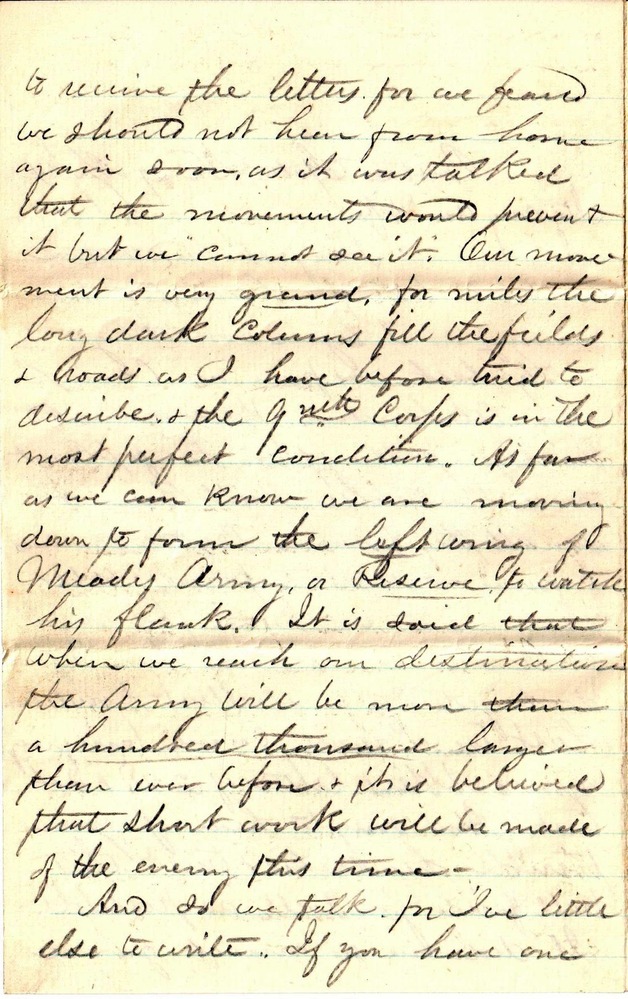 to receive the letters for we feared
we should not hear from home
again soon, as it was talked
that the movements would prevent
it but we "cannot see it". Our move-
ment is very grand, for miles the
long dark columns fill the fields
& roads as I have before tried to
describe. & the 9th Corps is in the
most perfect condition. As far
as we can know we are moving
down to form the left wing of
Meades Army, or Reserve, to watch
his flank. It is said that
when we reach our destination
the Army will be more than
a hundred thousand larger
than ever before & it is believed
that short work will be made
of the enemy this time -
And so we talk for I've little
else to write. If you have one